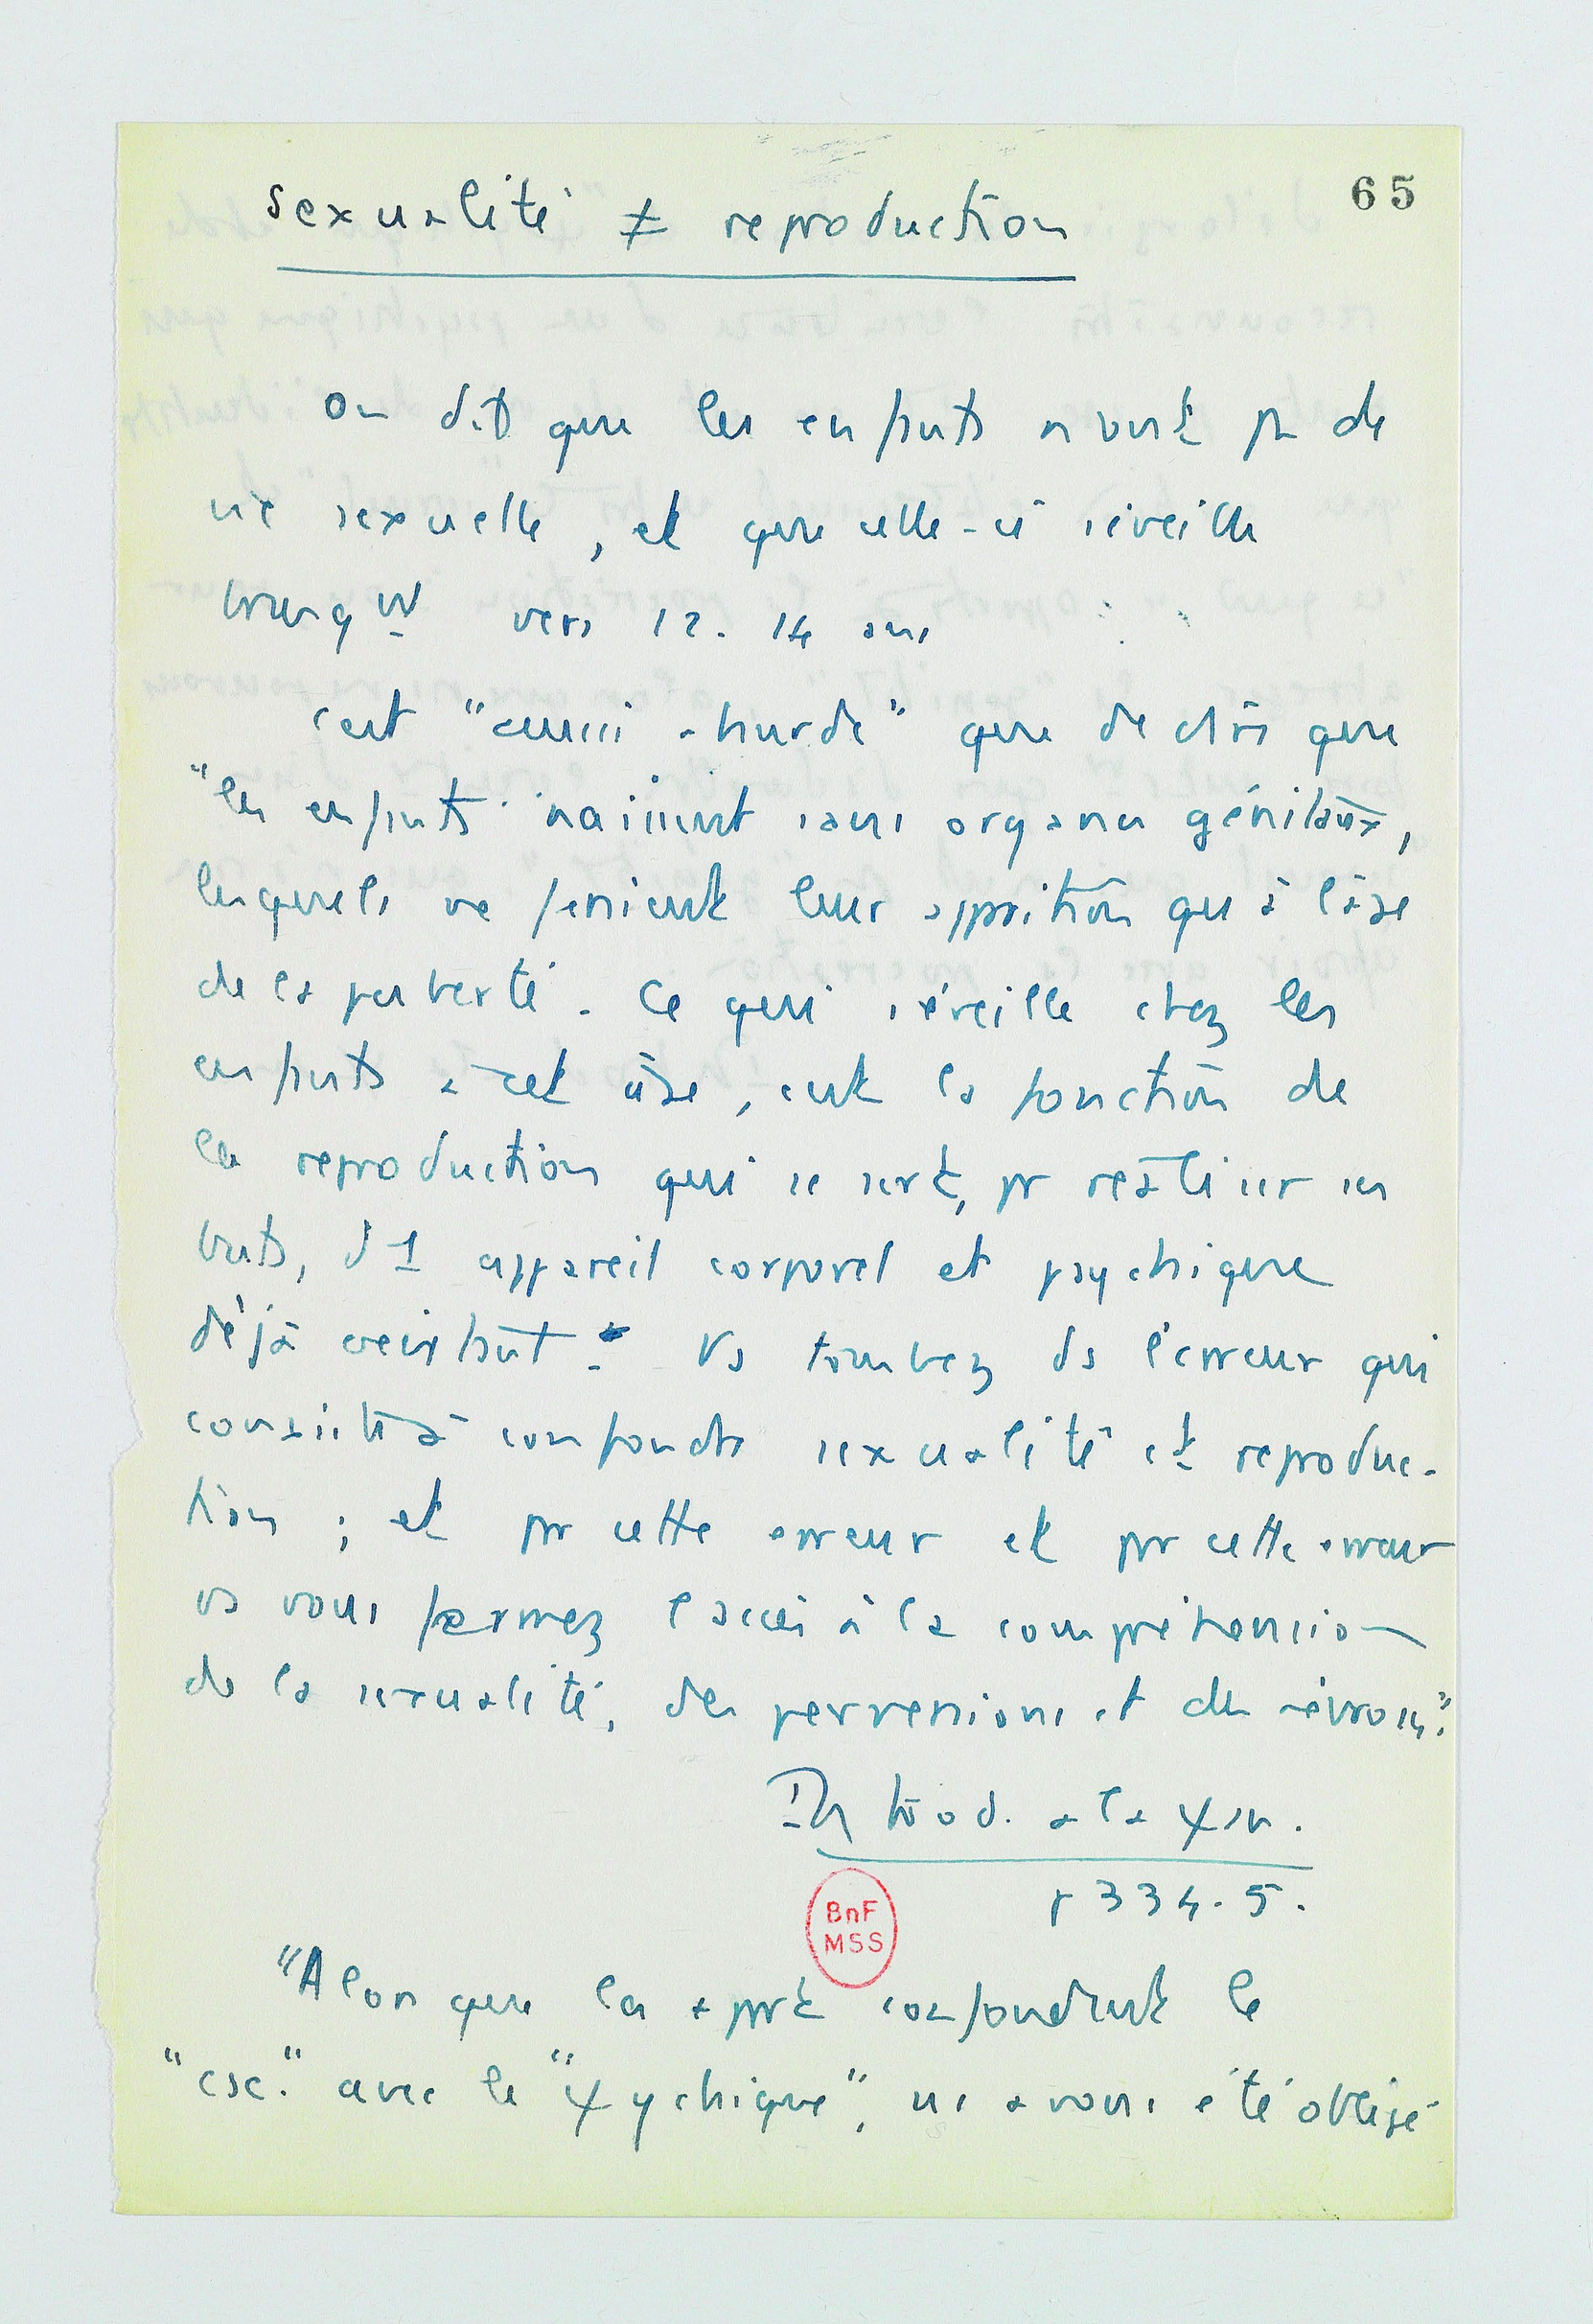 65
sexualité ≠ reproduction
On dit que les enfants n'ont pas de
vie sexuelle, et que celle-ci s'éveille
brusqut vers 12. 14 ans
C'est "aussi absurde" que de dire que
"les enfants naissent sans organes génitaux,
lesquels ne feraient leur apparition qu'à l'âge
de la puberté. Ce qui s'éveille chez les
enfants à cet âge, c'est la fonction de
la reproduction qui se sert, pr réaliser ses
buts, d'1 appareil corporel et psychique
déjà existant. Vs tombez ds l'erreur qui
consiste à confondre sexualité et reproduc-
tion ; et par cette erreur et par cette erreur
vs vous fermez l'accès à la compréhension
de la sexualité, des perversions et des névroses".
Introd. à la ψan.
p 334-5.
BnF
MSS
"Alors que la plupart confondent le
"csc." avec le "ψychique", ns avons été obligé